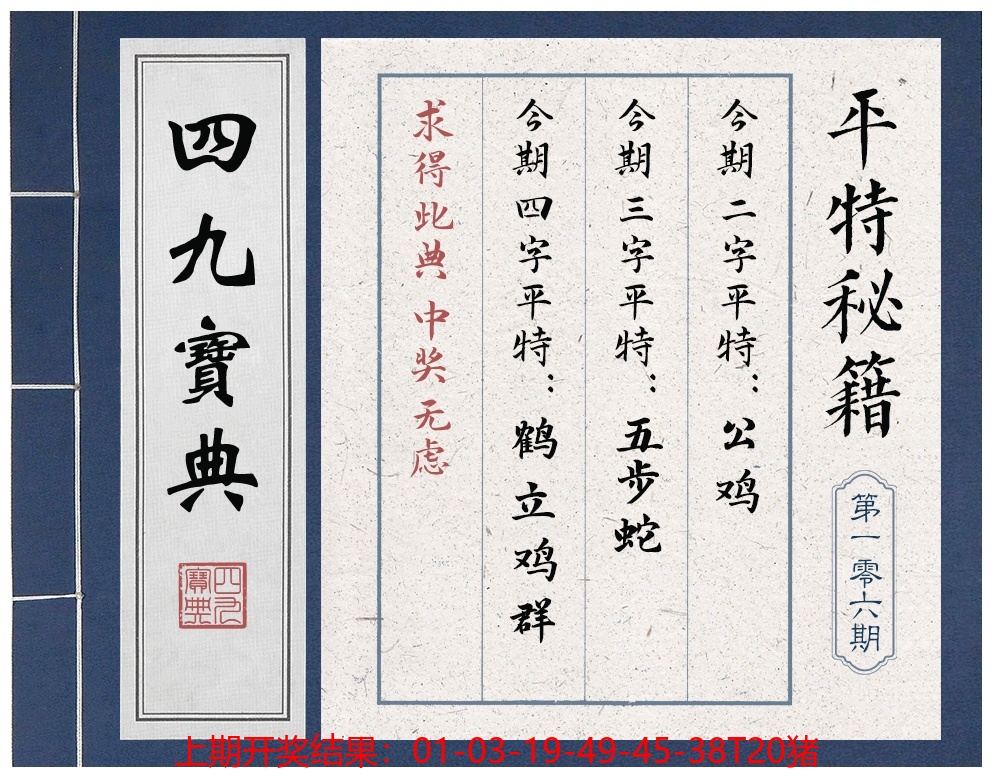 平特秘籍
第一零六期
今期二字平特：公鸡
今期三字平特：五步蛇
今期四字平特：鹤立鸡群
求得此典 中奖无虑
四九寶典
四九
寶典
上期开奖结果：01-03-19-49-45-38T20猪